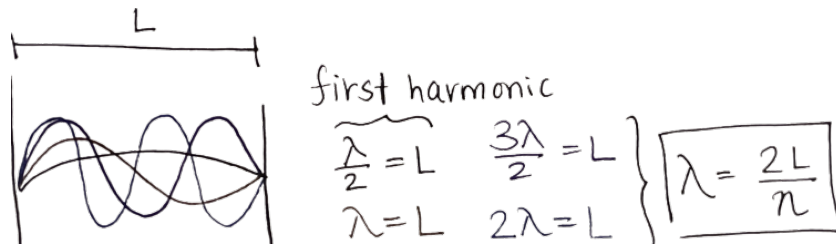 L
first harmonic
λ/2 = L    3λ/2 = L
λ = L    2λ = L
λ = 2L/n